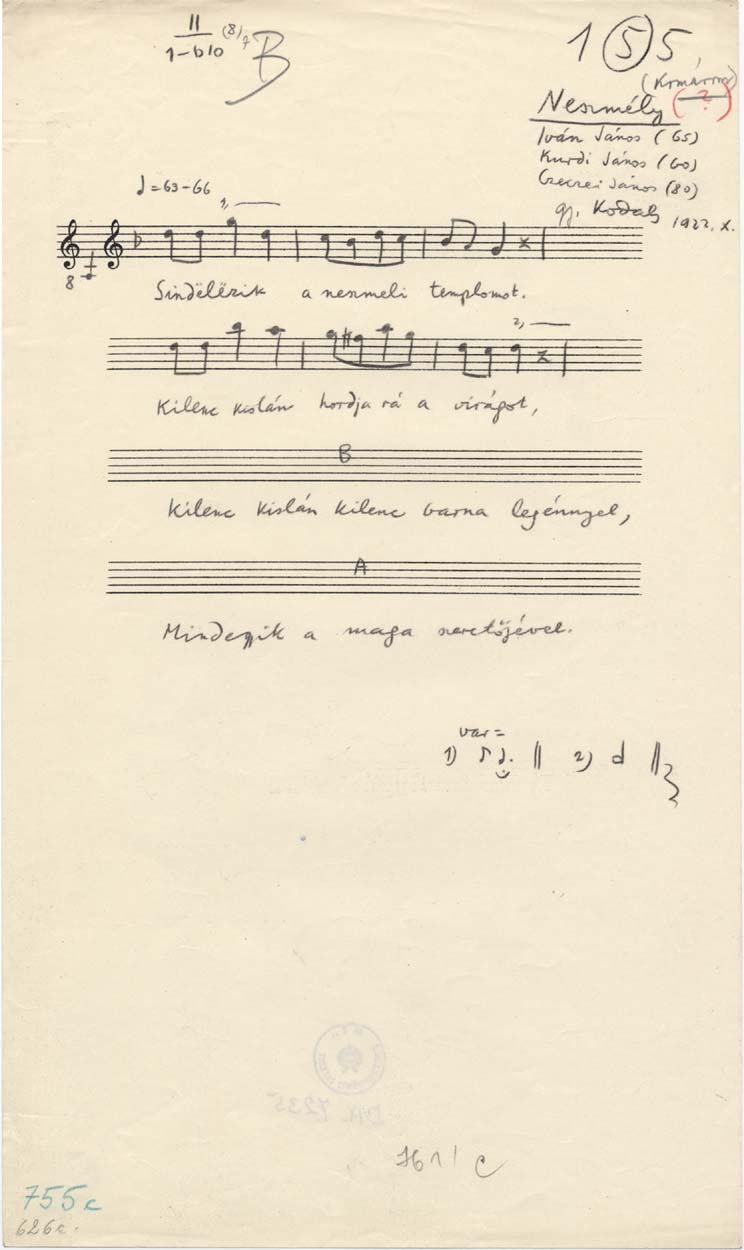 II
1-b10 (8) 7 B
1 5 5
(Komárom)
Neszmély (?)
Iván János (65)
Kurdi János (60)
János (80)
gy. Kodály 1922. X.
♩=63-66
1,
8
Sindëlëzik a neszmeli templomot.
2,
Kilenc kislán hordja rá a virágot,
B
Kilenc kislán kilenc barna legénnyel,
A
Mindegyik a maga szeretőjével.
var=
1) ♪ ♩. || 2) d ||
761/c
755c
626c.